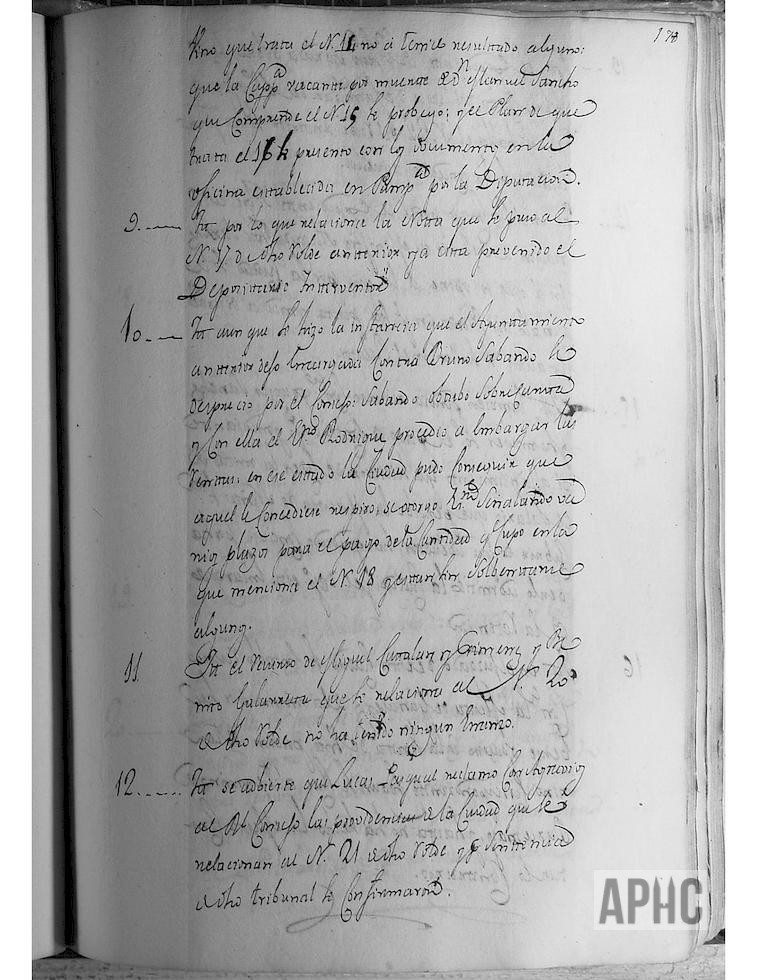 178
que trata el N. 14 no a tenido resultado alguno:
que la Capp.ª vacante por muerte de D.n Manuel Sancho
que Comprende el N. 15 se probeyo; y el Plan de que
trata el 16 se presento con los documentos en la
oficina establecida en Pamp.na por la Diputacion.
9. It. por lo que relaciona la Nota que se puso al
N. 17 de dho Volde anterior ya esta prevenido el
Depositario Interventor
10. It. aunque se hizo la instancia que el Ayuntamiento
anterior dejo encargada Contra Bruno Sabando se
desprecio por el Consejo: Sabando obtubo Sobrejunta
y Con ella el Es.no Rodriguez procedio a Embargar las
rentas; en ese estado la Ciudad pudo Conseguir que
aquel le Concediese respiro; se otorgo señalando va
rios plazos para el pago de la Cantidad en la
que menciona el N. 18 y estan sin Solbentarse
algunos.
11 It. el recurso de Miguel Catalan y Gimenez y Be
nito Galarreta que se relaciona al N. 20
de dho Volde no ha tenido ningun
12. It. se adbierte que Lucas Pasqual reclamo Con Agravios
al Rl. Consejo las providencias de la Ciudad que se
relacionan al N. 21 de dho Volde y p.r Sentencia
de dho tribunal se Confirmaron.
APHC